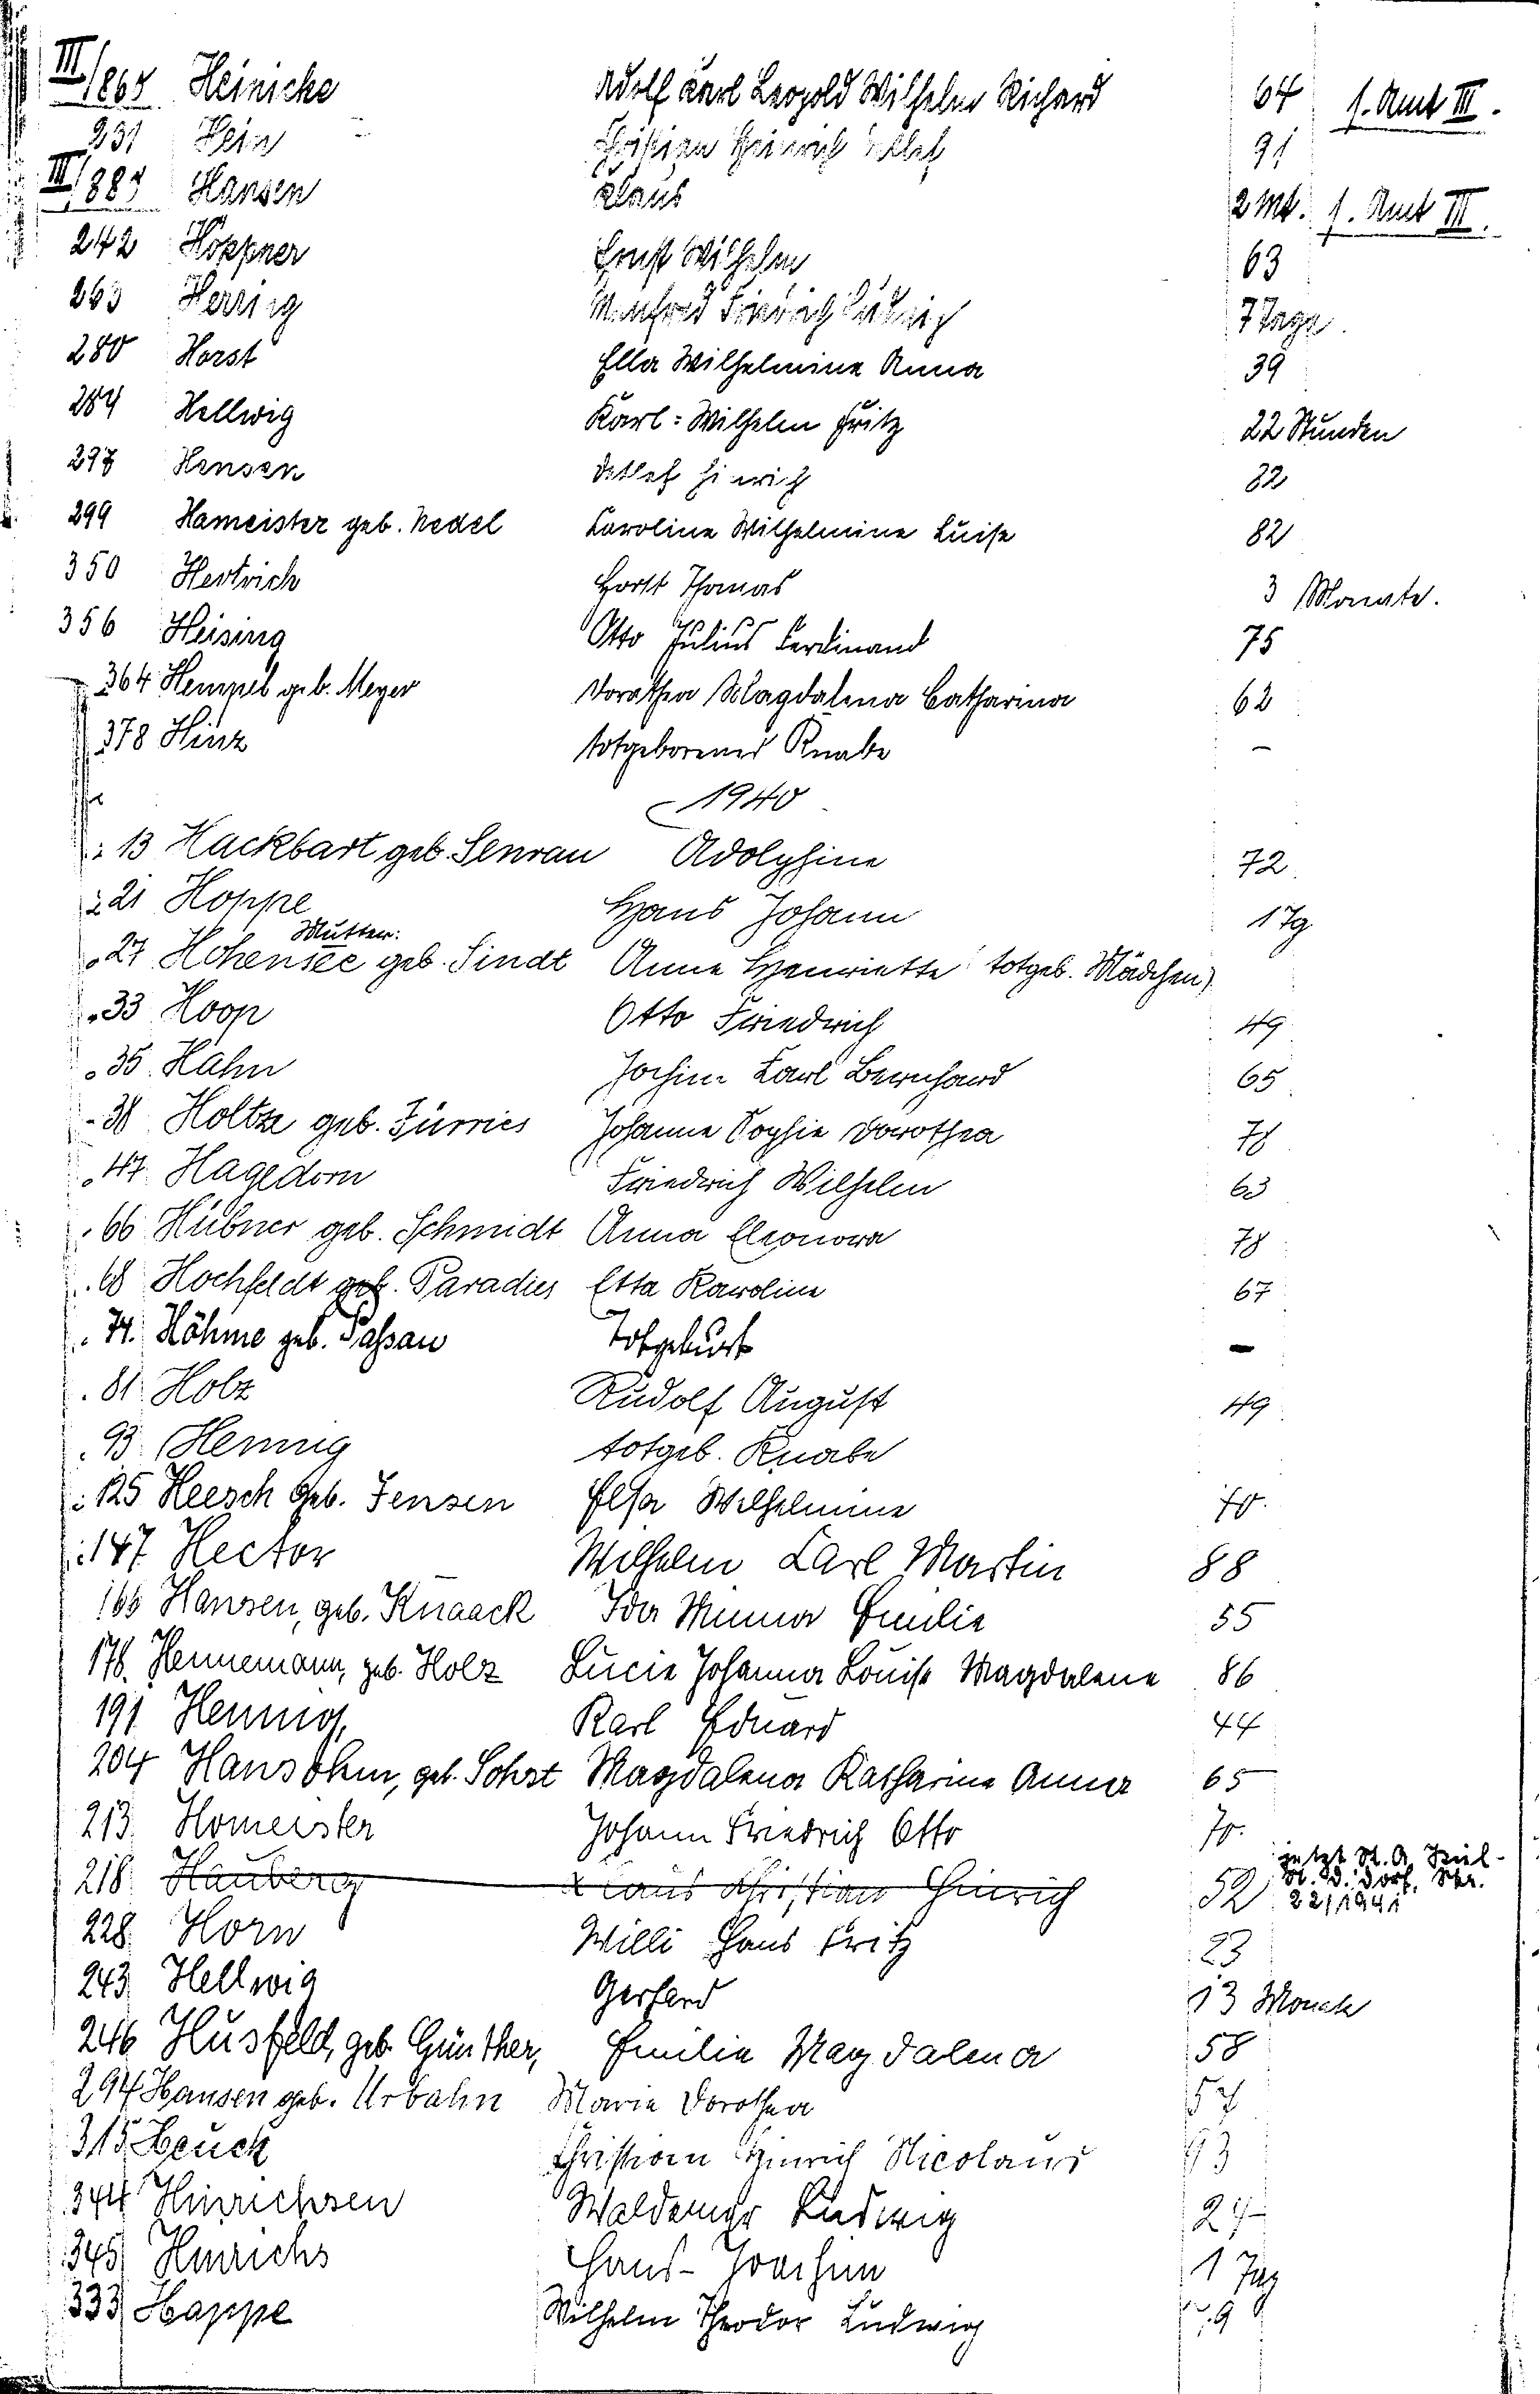 III/865 Heinicke Adolf Karl Leopold Wilhelm Richard 64 s. Amt III.
231 Hein Christian Heinrich Detlef 91
III/883 Hansen Klaus 2 Mt. s. Amt III.
242 Höppner Ernst Wilhelm 63
263 Hering Manfred Friedrich Ludwig 7 Tage
280 Horst Ella Wilhelmine Anna 39
284 Hellwig Karl-Wilhelm Fritz 22 Stunden
297 Hensen Detlef Hinrich 82
299 Hameister geb. Nedel Caroline Wilhelmine Luise 82
350 Hertrich Horst Thomas 3 Monate.
356 Heising Otto Julius Ferdinand 75
364 Hempel geb. Meyer Dorothea Magdalena Catharina 62
378 Hinz totgeborener Knabe –
1940
13 Hackbart geb. Senrau Adolphine 72
21 Hoppe Hans Johann 1 Tg.
Mutter:
27 Hohensee geb. Sindt Anne Henriette totgeb. Mädchen)
33 Hoop Otto Friedrich 49
35 Hahn Jochim Karl Bernhard 65
38 Holtze geb. Jürries Johanne Sophie Dorothea 78
47 Hagedorn Friedrich Wilhelm 63
66 Hübner geb. Schmidt Anna Eleonora 78
68 Hochfeldt geb. Paradies Etta Karoline 67
74. Höhme geb. Passau Totgeburt –
81 Holz Rudolf August 49
93 Hennig totgeb. Knabe
125 Heesch geb. Jensen Elsa Wilhelmine 70.
147 Hector Wilhelm Karl Martin 88
166 Hansen, geb. Knaack Ida Minna Emilie 55
178. Hennemann, geb. Holz Lucie Johanna Louise Magdalene 86
191 Hennig, Karl Eduard 44
204 Hansohm, geb. Sohst Magdalena Katharina Anna 65
213. Homeister Johann Friedrich Otto 70.
218. Hauberg Klaus Christian Hinrich 52 jetzt St. A. Kiel-
22/1941
228. Horn Willi Hans Fritz 23
243 Hellwig Gerhard 13 Monate
246 Husfeld, geb. Günther, Emilie Magdalena 58
294 Hansen geb. Urbahn Marie Dorothea 57
315 Heuck Christian Hinrich Nicolaus 93
344 Hinrichsen Waldemar Ludwig 27
345 Hinrichs Hans-Joachim 1 Tag
333 Happe Wilhelm Theodor Ludwig